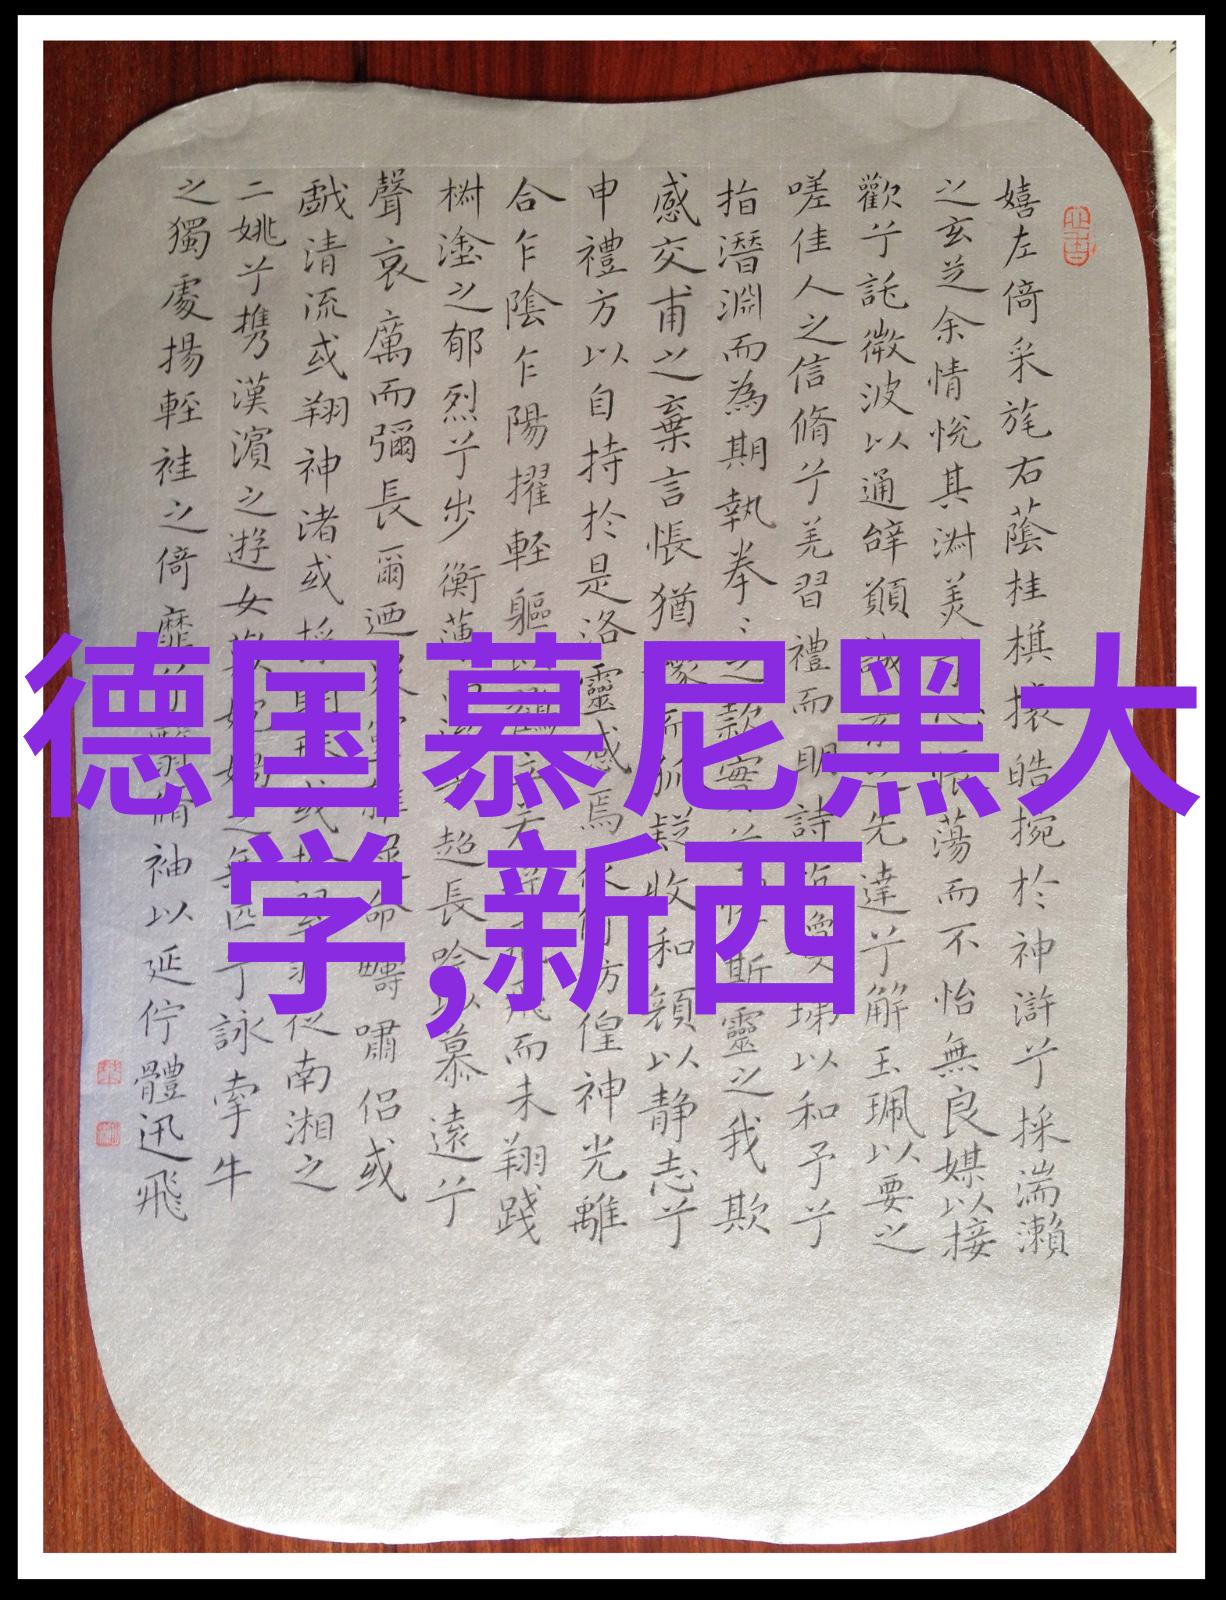 嬉左倚采旄右蔭桂棋攘皓捥於神滸兮採湍瀨
之玄芝余情悅其淑美蕩而不怡無良媒以接
歡兮託微波以通辭願誠先達兮解玉珮以要之
嗟佳人之信脩兮羌習禮而明詩瓊珶以和予兮
指潛淵而為期執拳〻之款實斯靈之我欺
感交甫之棄言悵猶豫而狐疑收和顏以静志兮
申禮方以自持於是洛靈感焉徙倚彷徨神光離
合乍陰乍陽擢輕軀以鶴立若將飛而未翔踐
椒塗之郁烈兮步衡薄超長吟以慕遠兮
聲哀厲而彌長爾迺眾命疇嘯侶或
戲清流或翔神渚或採明珠或拾翠羽從南湘之
二姚兮携漢濱之遊女之無匹兮詠牽牛
之獨處揚輕袿之倚靡兮翳脩袖以延佇體迅飛
德国慕尼黑大
学,新西